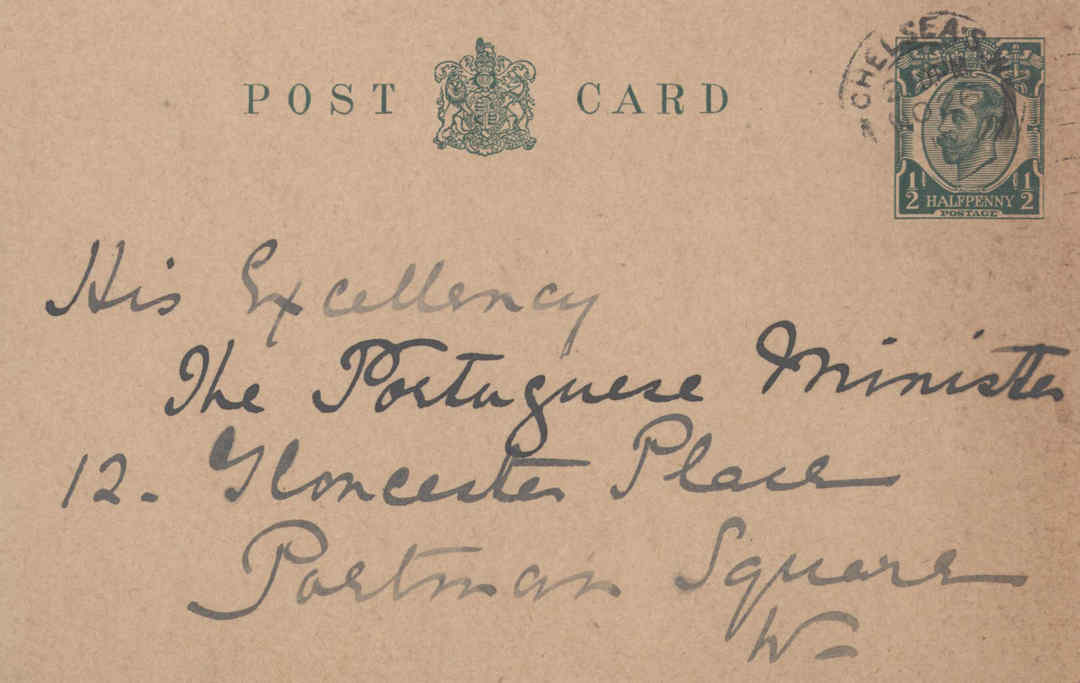 POST CARD
CHELSEA S.W.
½ HALFPENNY ½
POSTAGE
His Excellency
The Portuguese Minister
12. Gloucester Place
Portman Square
W.